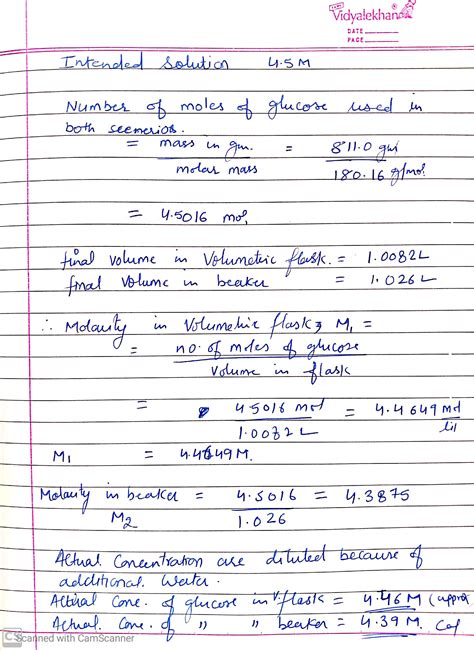 Vidyalekhan
DATE
PAGE
Intended Solution 4.5 M
Number of moles of glucose used in
both seemerios.
= mass in gm. = 811.0 gm
molar mass 180.16 g/mol
= 4.5016 mol
final volume in Volumetric flask. = 1.0082 L
final Volume in beaker = 1.026 L
∴ Molarity in Volumetric flask, M1 =
= no. of moles of glucose
Volume in flask
= 4.5016 mol = 4.4649 mol
1.0082 L lit
M1 = 4.4649 M.
Molarity in beaker = 4.5016 = 4.3875
M2 1.026
Actual Concentration are diluted because of
additional Water.
Actual Conc. of glucose in V. flask = 4.46 M (approx
Actual Conc. of " " beaker = 4.39 M.
CS Scanned with CamScanner